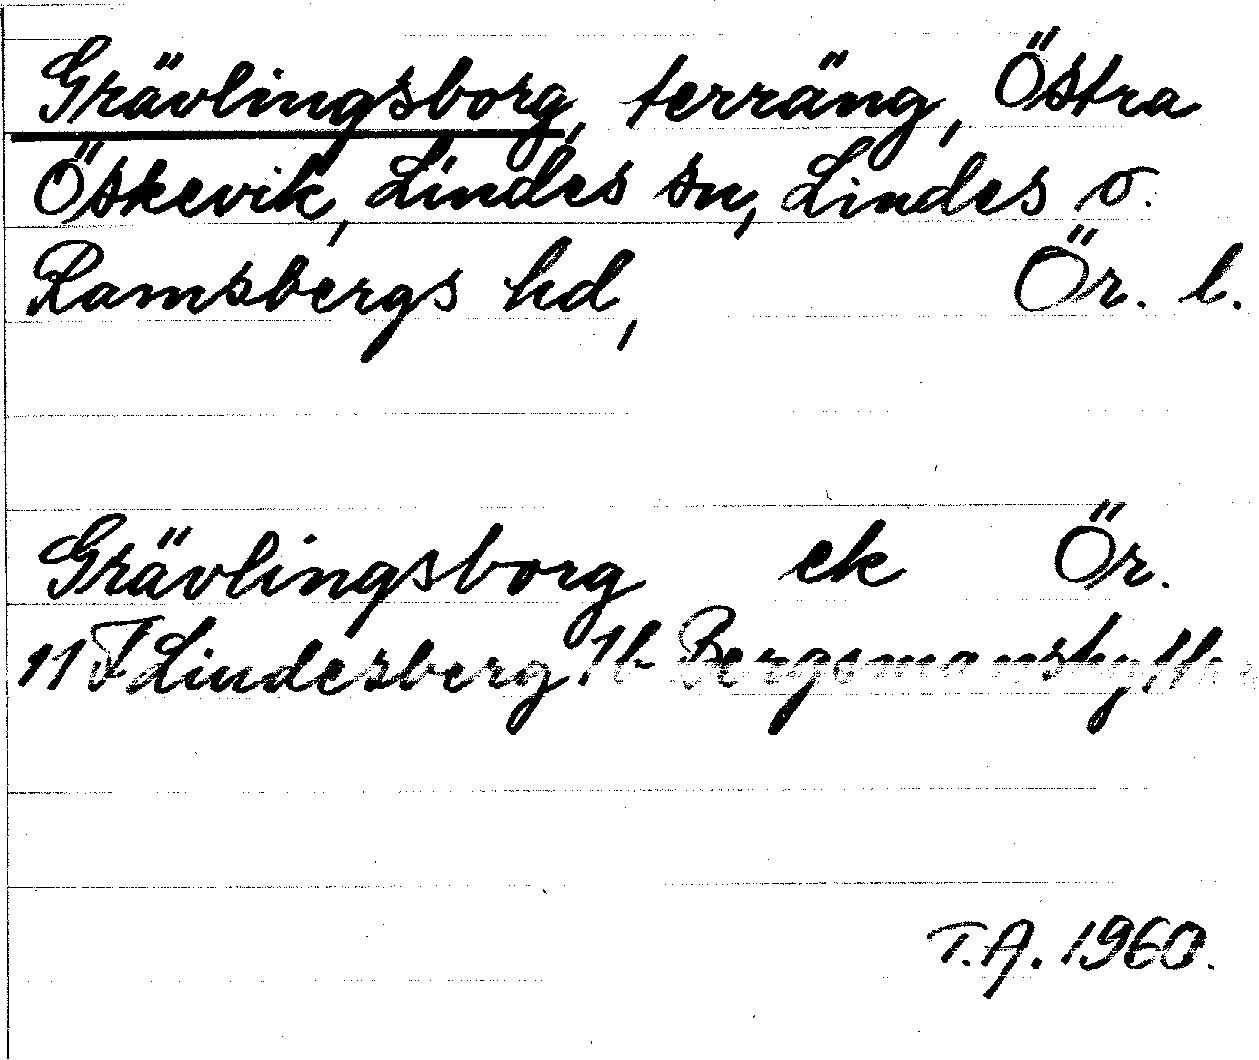 Grävlingsborg, terräng, Östra
Öskevik, Lindes sn, Lindes o.
Ramsbergs hd, Ör. l.
Grävlingsborg ek Ör.
11 F Lindesberg 1b Bergsmanshyttan
T.A. 1960.